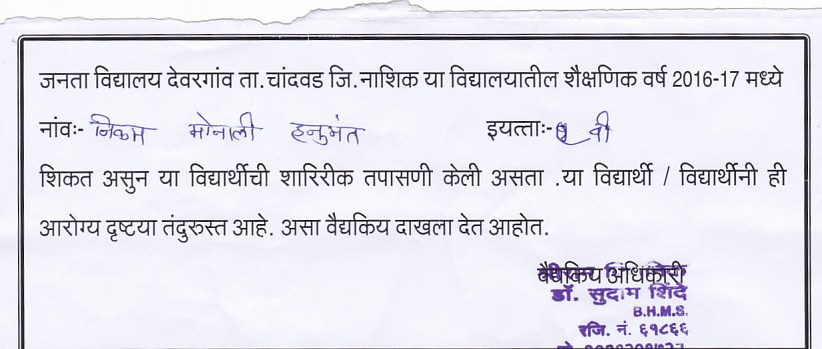 जनता विद्यालय देवरगांव ता.चांदवड जि.नाशिक या विद्यालयातील शैक्षणिक वर्ष 2016-17 मध्ये
नांवः- निकम मोनाली हनुमंत इयत्ताः- वी
शिकत असुन या विद्यार्थीची शारिरीक तपासणी केली असता .या विद्यार्थी / विद्यार्थीनी ही
आरोग्य दृष्टया तंदुरुस्त आहे. असा वैद्यकिय दाखला देत आहोत.
वैद्यकिय अधिकारी
डॉ. सुदाम शिंदे
B.H.M.S.
रजि. नं. ६१८६६